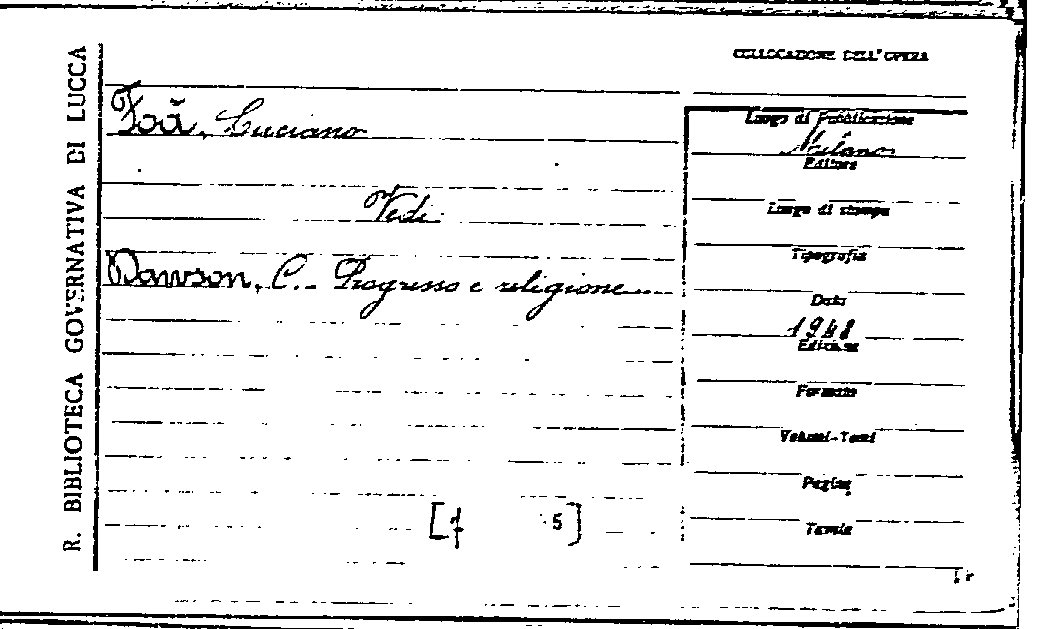 R. BIBLIOTECA GOVERNATIVA DI LUCCA
COLLOCAZIONE DELL'OPERA
Foà, Luciano
Vedi
Dawson, C. - Progresso e religione
Luogo di Pubblicazione
Milano
Editore
Luogo di stampa
Tipografia
Data
1948
Edizione
Formato
Volumi-Tomi
Pagine
Tavole
[f 5]